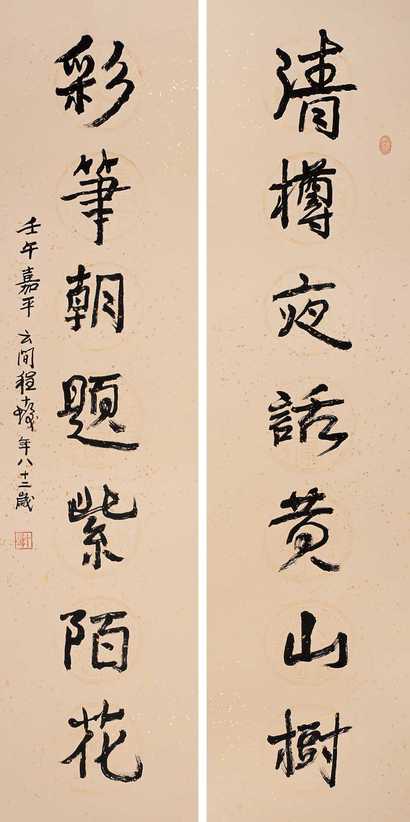 清樽夜話黄山樹
彩筆朝題紫陌花
壬午嘉平 云间程十发 年八十二歲